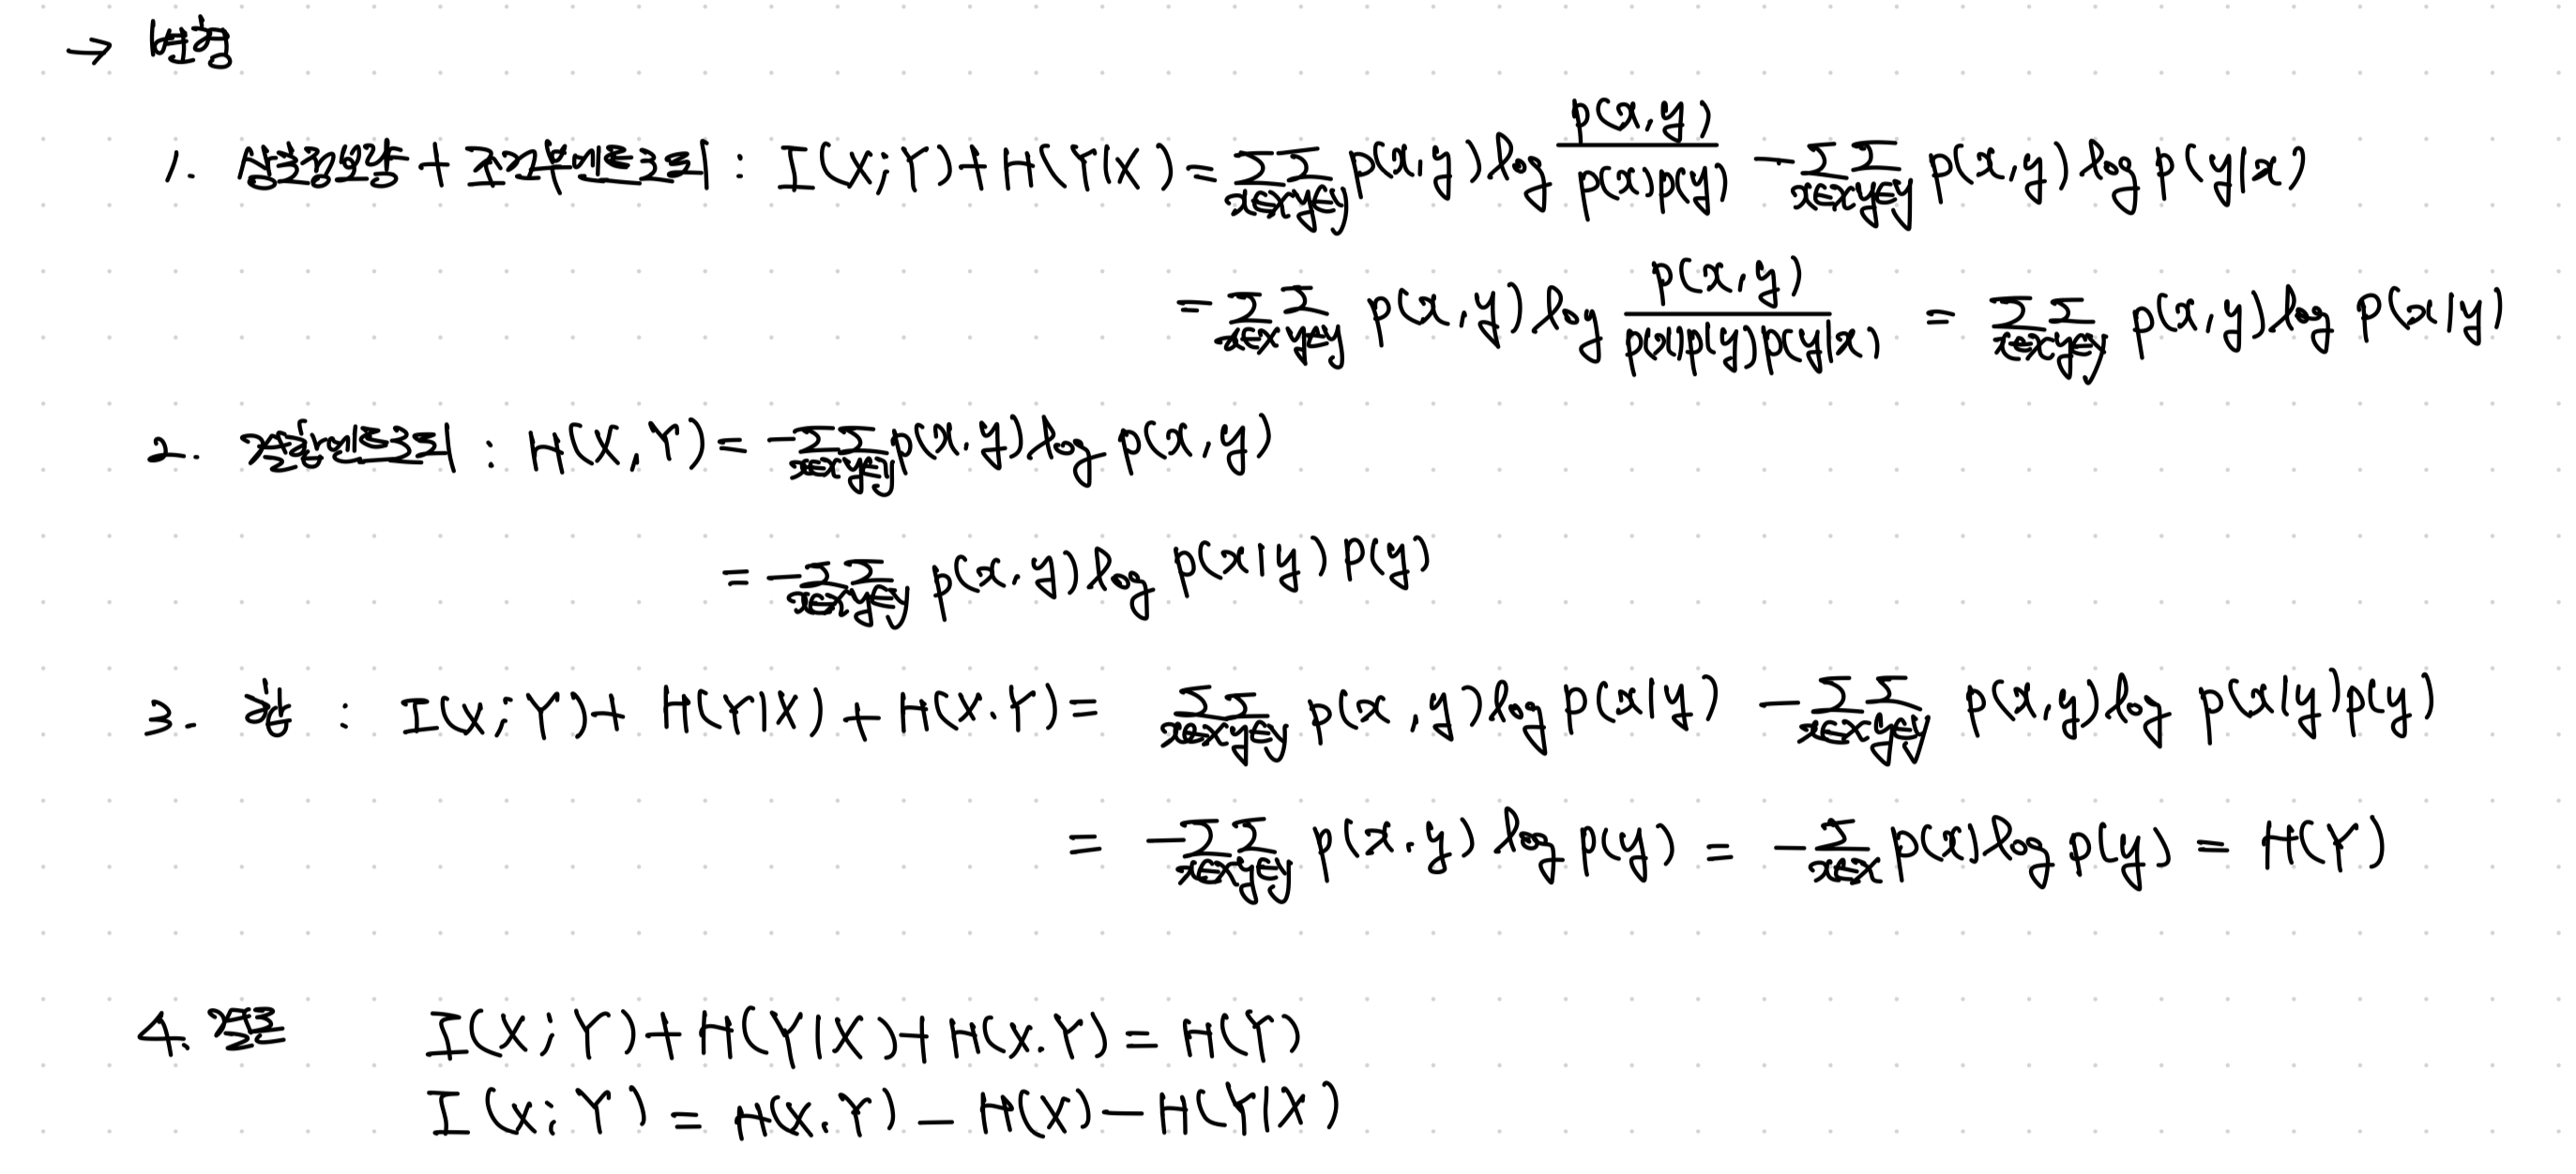 → 변형
1. 상호정보량 + 조건부엔트로피 : I(X;Y)+H(Y|X) = Σ_{x∈X} Σ_{y∈y} p(x,y) log p(x,y) / p(x)p(y) - Σ_{x∈X} Σ_{y∈y} p(x,y) log p(y|x)
= Σ_{x∈X} Σ_{y∈y} p(x,y) log p(x,y) / p(x)p(y)p(y|x) = Σ_{x∈X} Σ_{y∈y} p(x,y) log p(x|y)
2. 결합엔트로피 : H(X,Y) = -Σ_{x∈X} Σ_{y∈y} p(x.y) log p(x,y)
= -Σ_{x∈X} Σ_{y∈y} p(x.y) log p(x|y) p(y)
3. 합 : I(X;Y)+ H(Y|X) + H(X.Y) = Σ_{x∈X} Σ_{y∈y} p(x,y) log p(x|y) - Σ_{x∈X} Σ_{y∈y} p(x,y) log p(x|y)p(y)
= -Σ_{x∈X} Σ_{y∈y} p(x.y) log p(y) = -Σ_{x∈X} p(x) log p(y) = H(Y)
4. 결론 I(X;Y)+H(Y|X)+H(X.Y) = H(Y)
I(X;Y) = H(X.Y) - H(X) - H(Y|X)